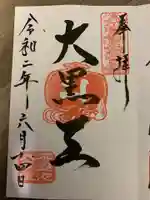 奉拝
大黒天
令和二年六月十四日